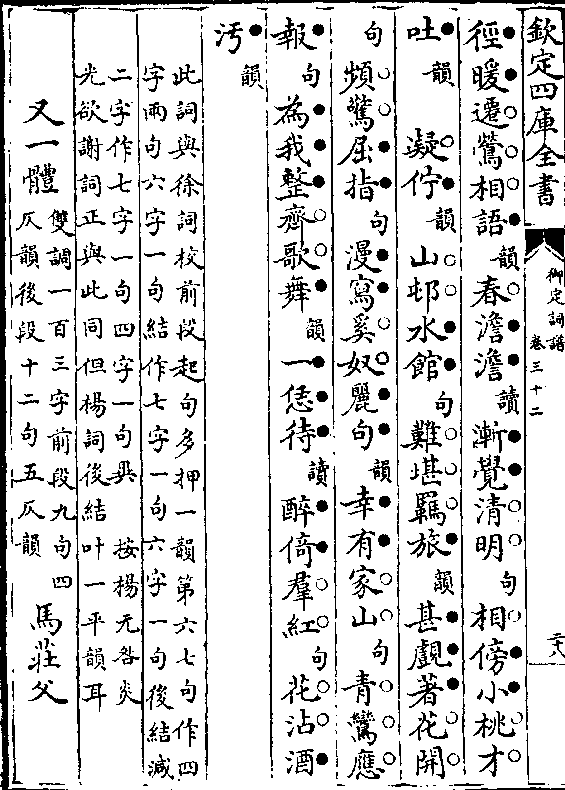 欽定四庫全書
御定詞譜
卷三十二
二十八
徑暖遷鶯相語韻春澹澹讀漸覺清明句相傍小桃才
吐韻凝佇韻山邨水館句難堪羈旅韻甚覷著花開
句頻驚屈指句漫寫奚奴麗句韻幸有家山句青鸞應
報句為我整齊歌舞韻一恁待讀醉倚羣紅句花沾酒
汚韻
此詞與徐詞校前段起句多押一韻第六七句作四
字兩句六字一句結作七字一句六字一句後結減
二字作七字一句四字一句異 按楊无咎炎
光欲謝詞正與此同但楊詞後結叶一平韻耳
又一體雙調一百三字前段九句四
仄韻後段十二句五仄韻 馬莊父